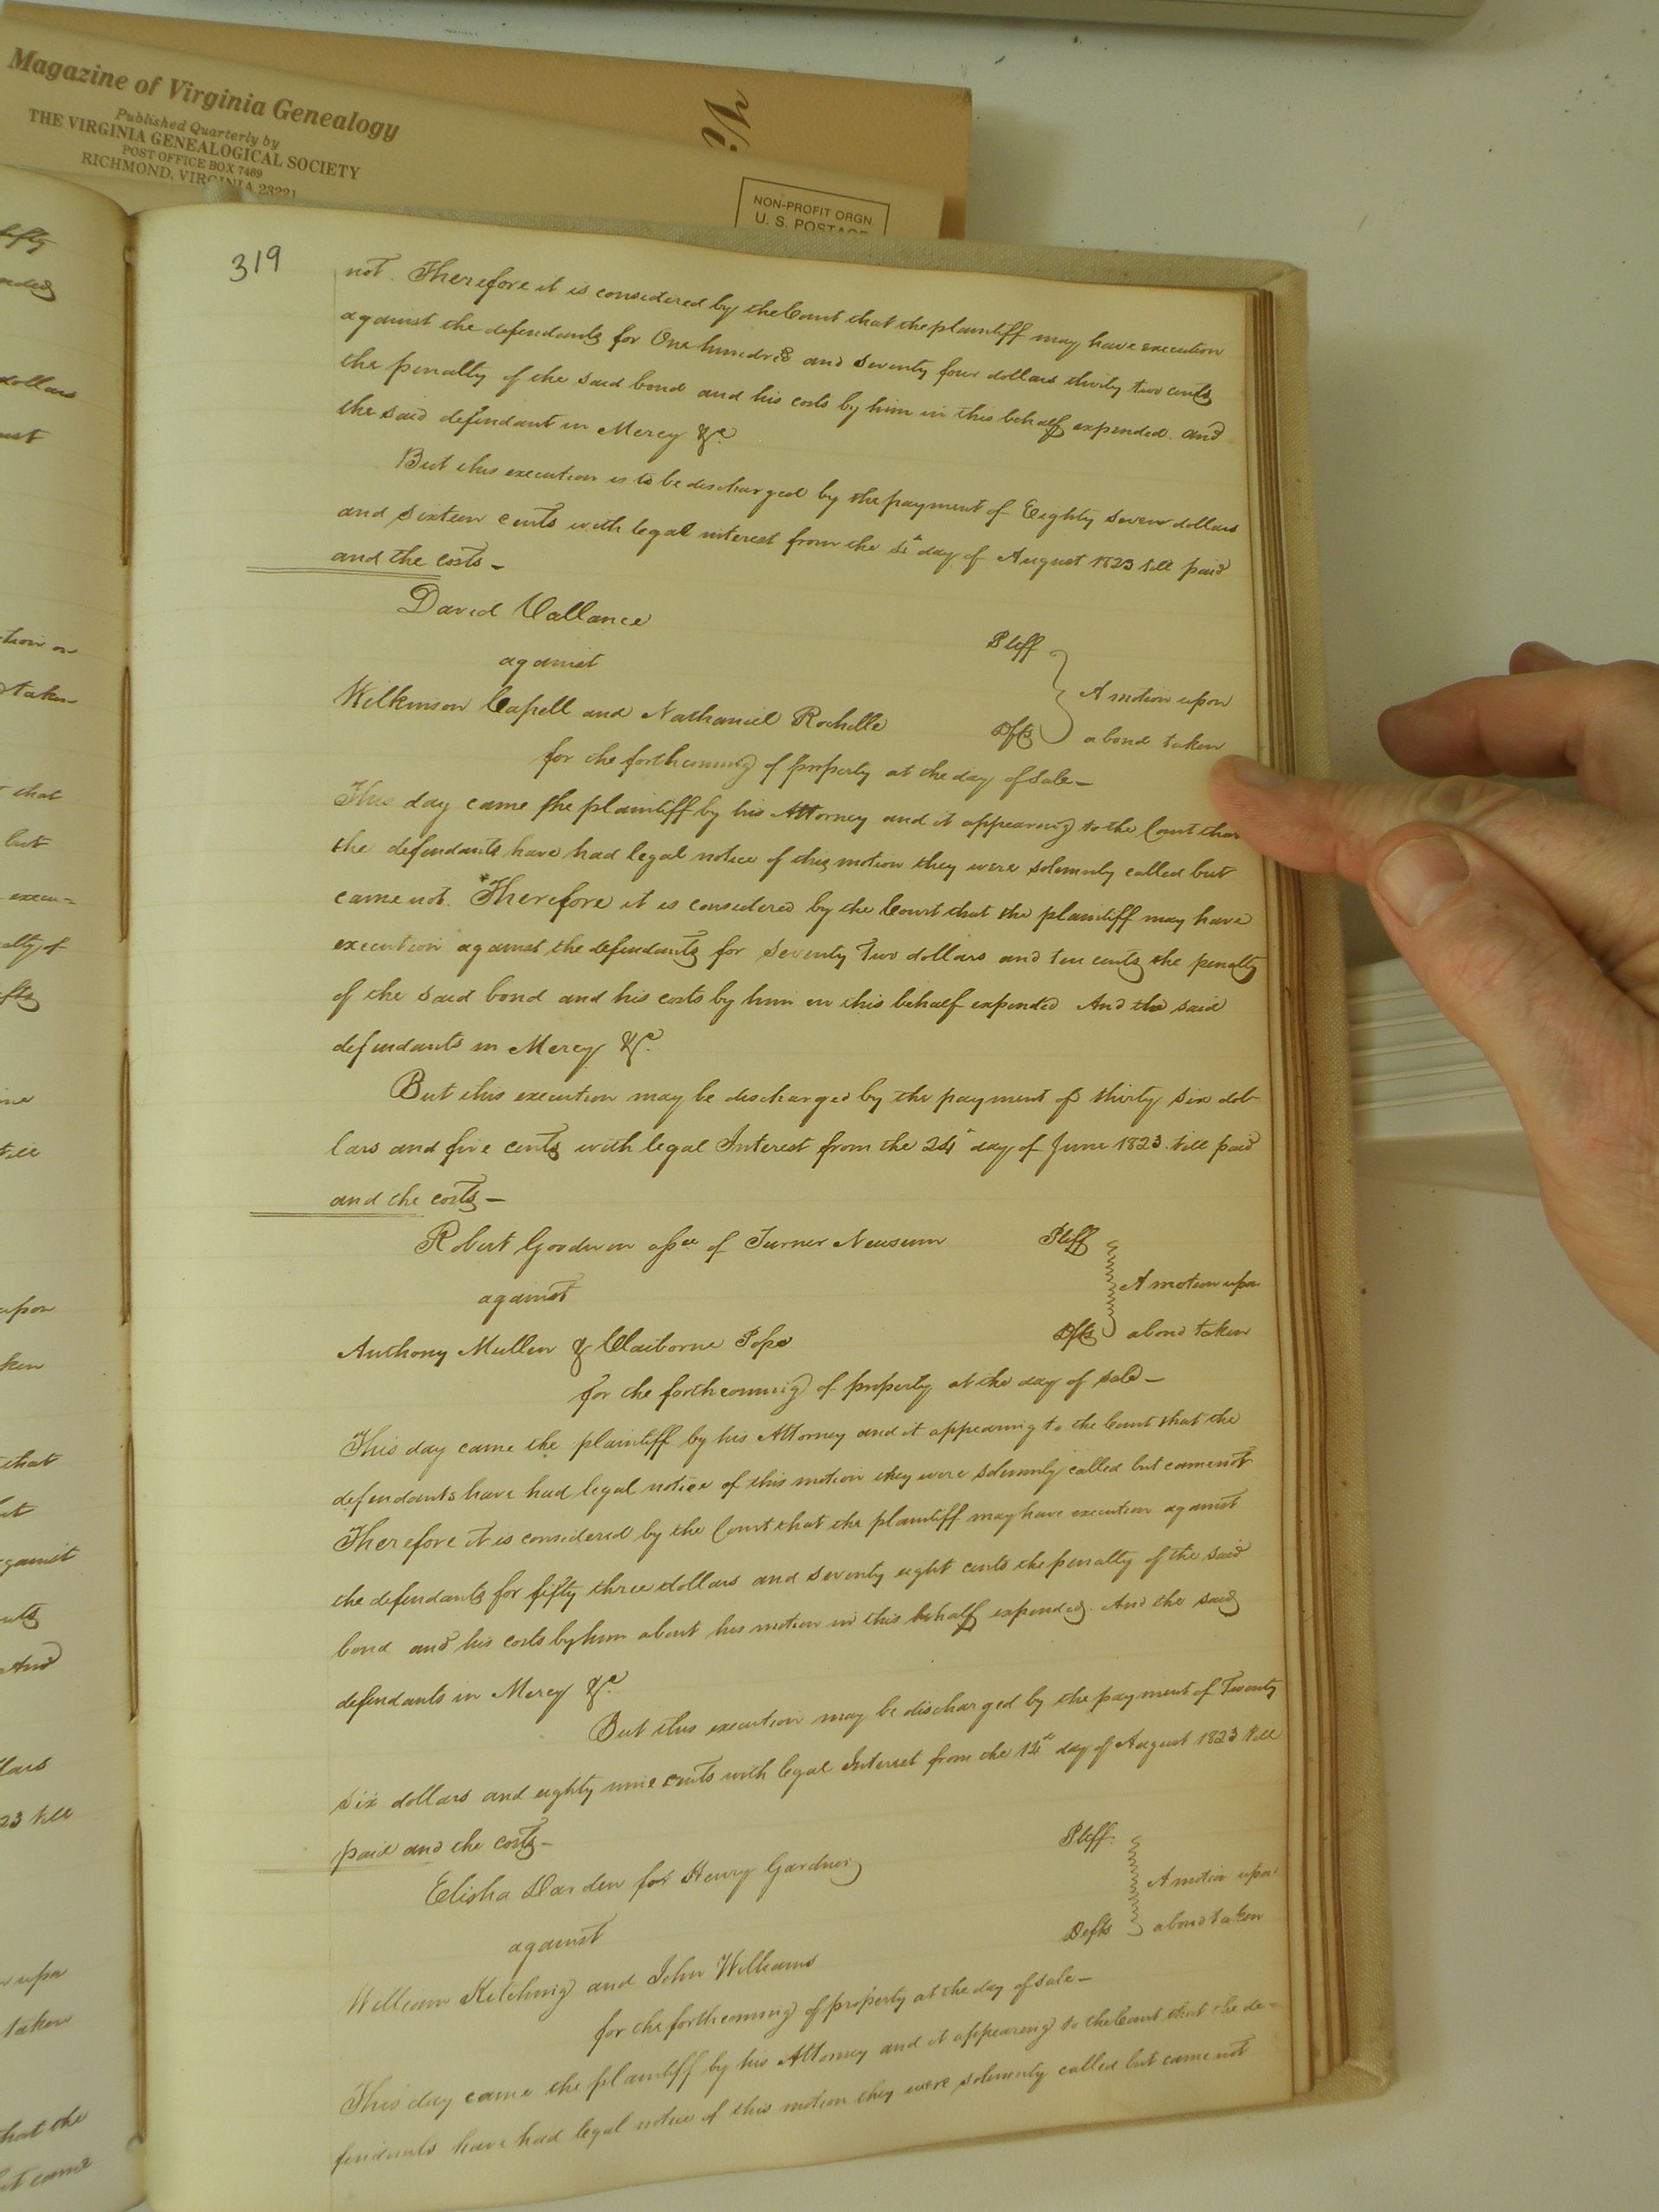 Magazine of Virginia Genealogy
Published Quarterly by
THE VIRGINIA GENEALOGICAL SOCIETY
POST OFFICE BOX 7469
RICHMOND, VIRGINIA 23221
NON-PROFIT ORGN.
U. S. POSTAGE
319
not. Therefore it is considered by the Court that the plaintiff may have execution
against the defendants for One hundred and seventy four dollars thirty two cents
the penalty of the said bond and his costs by him in this behalf expended. and
the said defendant in Mercy &c.
But this execution is to be discharged by the payment of Eighty seven dollars
and sixteen cents with legal interest from the day of August 1823 till paid
and the costs -
David Vallance
Pltff
against
A motion upon
Wilkinson Capell and Nathaniel Rochelle
Dfts
a bond taken
for the forthcoming of property at the day of sale -
This day came the plaintiff by his Attorney and it appearing to the Court that
the defendants have had legal notice of this motion they were solemnly called but
came not. Therefore it is considered by the Court that the plaintiff may have
execution against the defendants for seventy two dollars and ten cents the penalty
of the said bond and his costs by him in this behalf expended And the said
defendants in Mercy &c.
But this execution may be discharged by the payment of thirty six dol-
lars and five cents with legal Interest from the 24th day of June 1823. till paid
and the costs -
Robert Goodwin assee of Turner Newsum
Pltff
against
A motion upon
Anthony Mullen & Claiborne Pope
Dfts
a bond taken
for the forthcoming of property at the day of sale -
This day came the plaintiff by his Attorney and it appearing to the Court that the
defendants have had legal notice of this motion they were solemnly called but came not
Therefore it is considered by the Court that the plaintiff may have execution against
the defendants for fifty three dollars and seventy eight cents the penalty of the said
bond and his costs by him about his motion in this behalf expended. And the said
defendants in Mercy &c.
But this execution may be discharged by the payment of Twenty
six dollars and eighty nine cents with legal Interest from the day of August 1823 till
paid and the costs -
Elisha Darden for Henry Gardner
Pltff.
against
A motion upon
William Kitching and John Williams
Defts
a bond taken
for the forthcoming of property at the day of sale -
This day came the plaintiff by his Attorney and it appearing to the Court that the de-
fendants have had legal notice of this motion they were solemnly called but came not